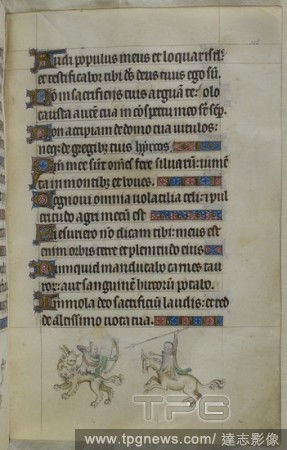 Audi populus meus et loquar isrl:
et testificabor tibi ds deus tuus ego sū.
Non in sacrificijs tuis arguā te: olo
causta autē tua in cōspectu meo sūt sēp.
Non accipiam de domo tua vitulos:
neqz de gregibz tuis hyrcos.
Qm̄ mee sūt om̄es fere silvarū: iumē
ta in montibz et boves.
Cognovi omnia volatilia celi: et pul
critudo agri mecū est.
Si esuriero nō dicam tibi: meus est
enim orbis terre et plenitudo eius.
Numquid manducabo carnes tau
rorz: aut sanguinē hircorū potabo.
Immola deo sacrificiū laudis: et red
de altissimo vota tua.
TPG
www.tpgnews.com/達志影像